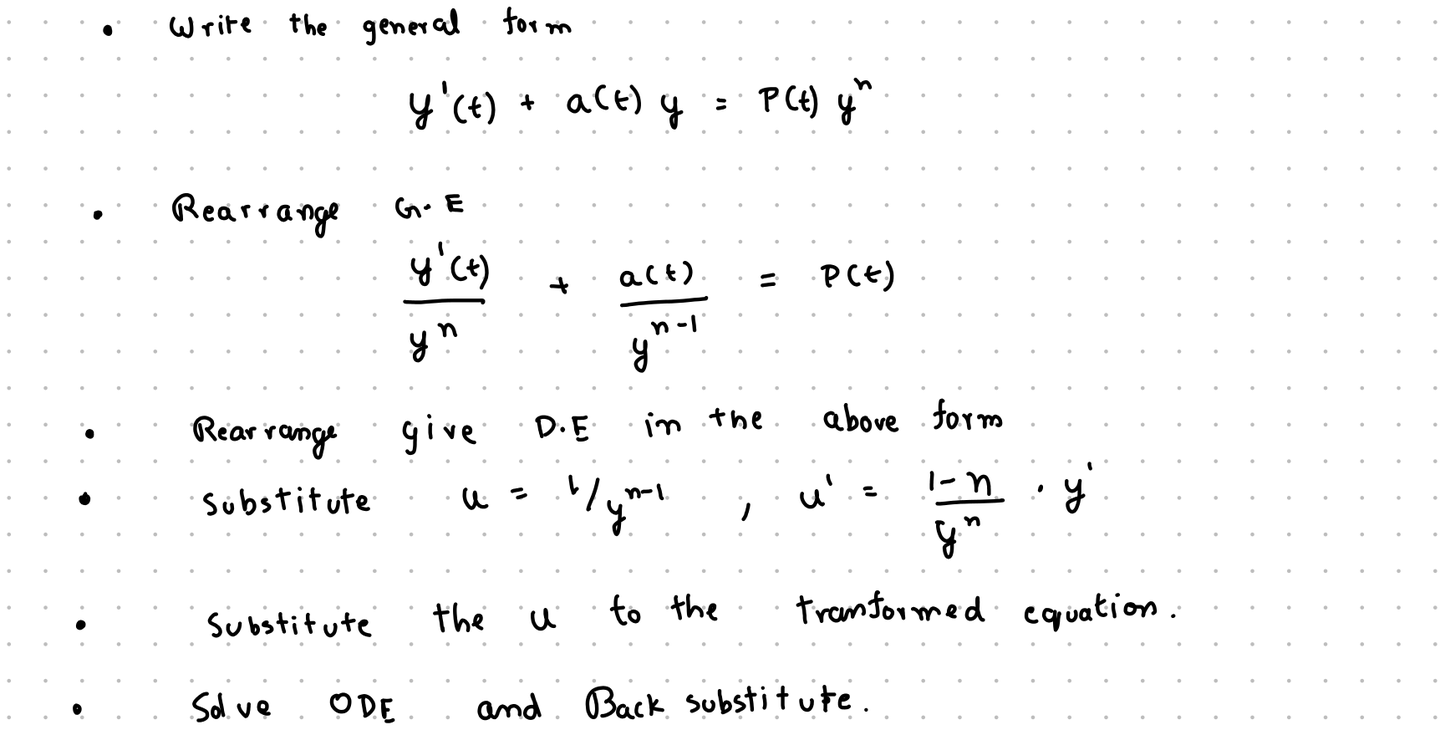 • Write the general form
y'(t) + a(t) y = P(t) yⁿ
• Rearrange G.E
y'(t)/yⁿ + a(t)/yⁿ⁻¹ = P(t)
• Rearrange give D.E in the above form
• Substitute u = 1/yⁿ⁻¹ , u' = (1-n)/yⁿ · y'
• Substitute the u to the transformed equation.
• Solve ODE and Back substitute.